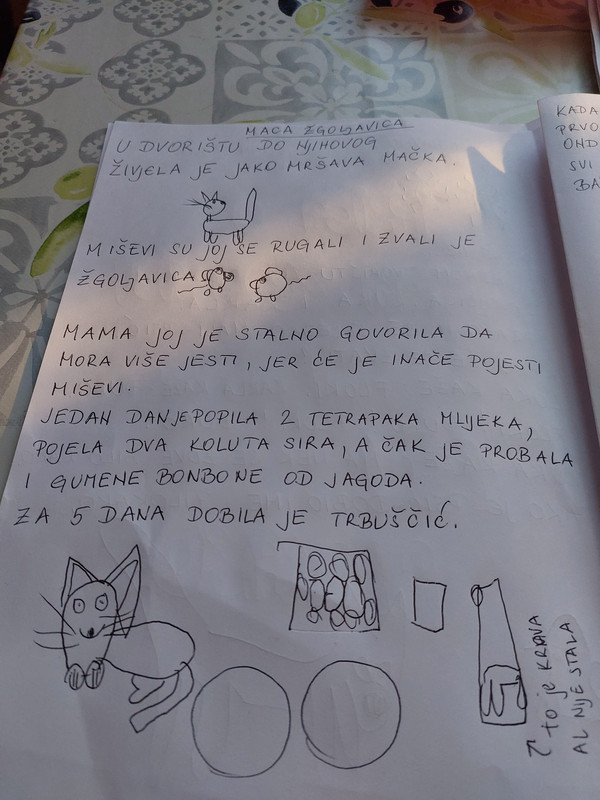 MACA ŽGOLJAVICA
U DVORIŠTU DO NJIHOVOG
ŽIVJELA JE JAKO MRŠAVA MAČKA.
MIŠEVI SU JOJ SE RUGALI I ZVALI JE
ŽGOLJAVICA
MAMA JOJ JE STALNO GOVORILA DA
MORA VIŠE JESTI, JER ĆE JE INAČE POJESTI
MIŠEVI.
JEDAN DAN JE POPILA 2 TETRAPAKA MLIJEKA,
POJELA DVA KOLUTA SIRA, A ČAK JE PROBALA
I GUMENE BONBONE OD JAGODA.
ZA 5 DANA DOBILA JE TRBUŠČIĆ.
to je KRAVA
AL NIJE STALA
KADA
PRVO
OND
SVI